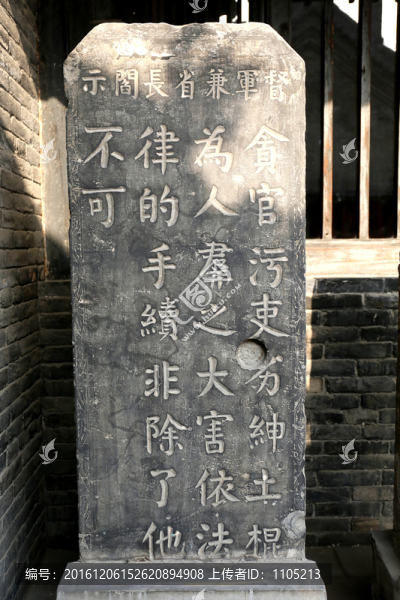 督軍兼省長閻示
貪官污吏劣紳土棍
為人羣之大害依法
律的手續非除了他
不可
编号:20161206152620894908 上传者ID:1105213